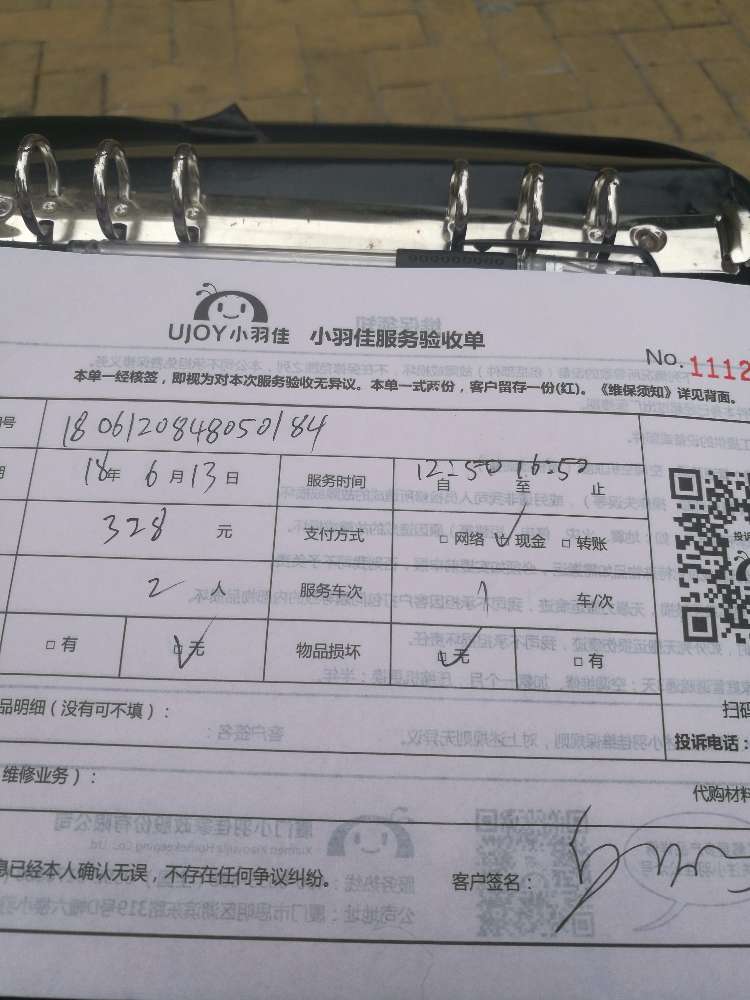 UJOY小羽佳 小羽佳服务验收单
No. 1112
本单一经核签，即视为对本次服务验收无异议。本单一式两份，客户留存一份(红)。《维保须知》详见背面。
号 1806120848050184
期 18年 6月13日 服务时间 自12:50至16:50止
328元 支付方式 □ 网络 ☑ 现金 □ 转账
2人 服务车次 1 车/次
□ 有 ☑ 无 物品损坏 ☑ 无 □ 有
扫码
品明细（没有可不填）： 投诉电话：
维修业务）： 代购材料
息已经本人确认无误，不存在任何争议纠纷。 客户签名：